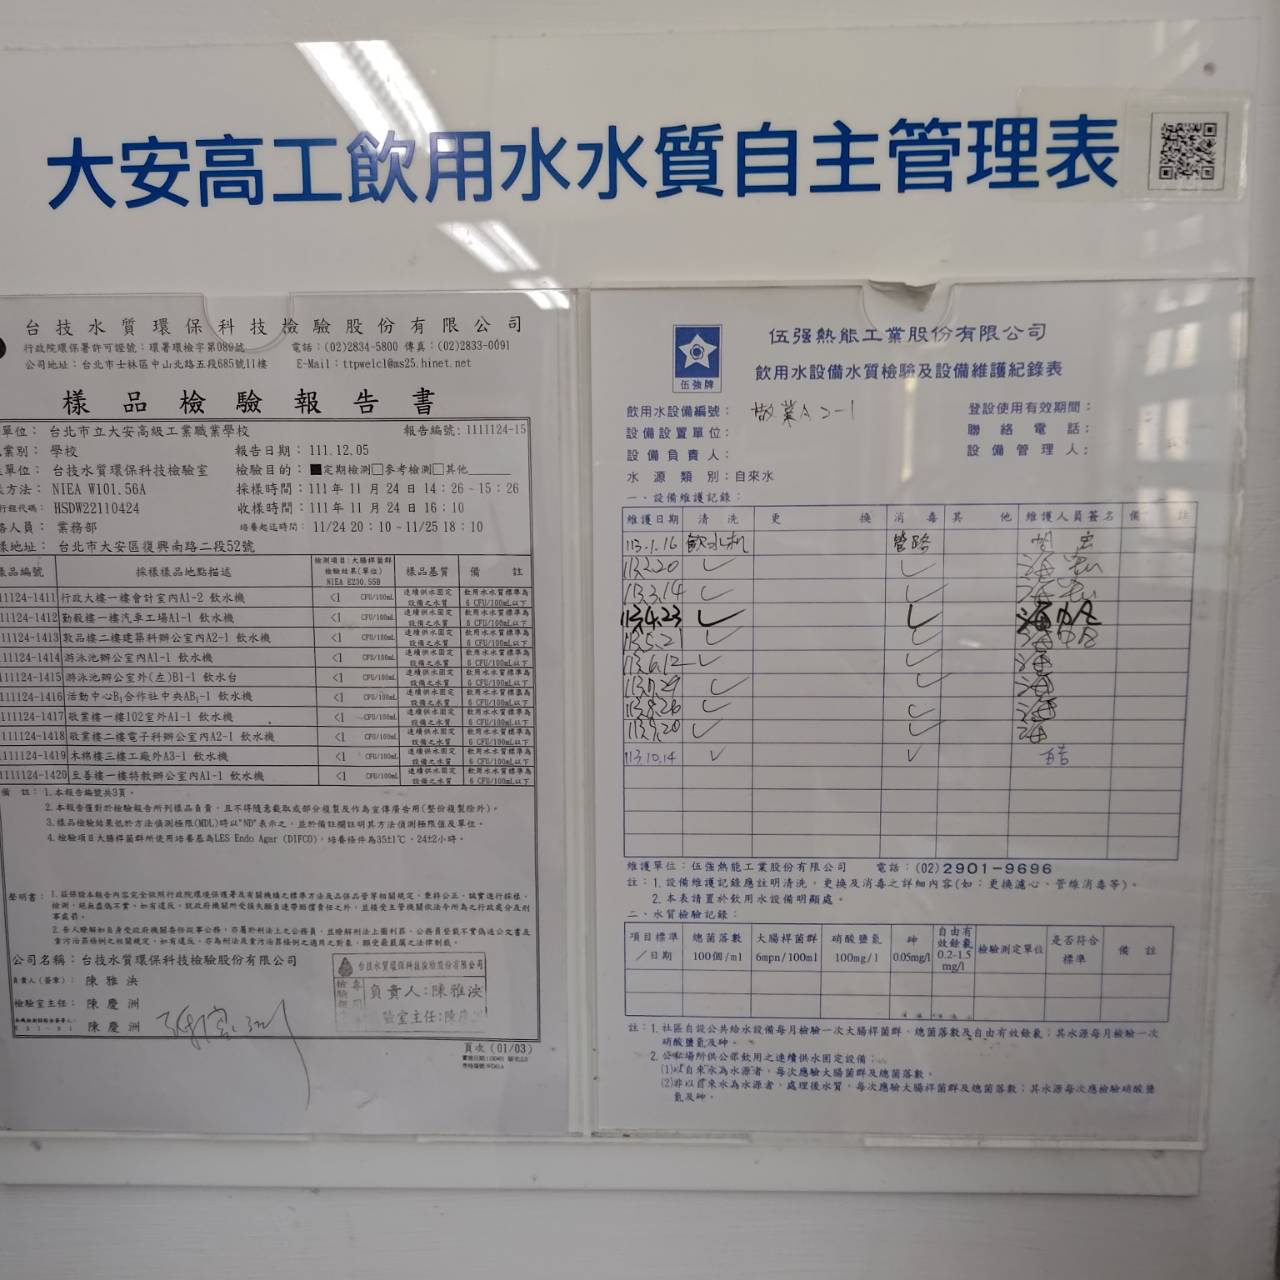 大安高工飲用水水質自主管理表
台技水質環保科技檢驗股份有限公司
行政院環保署許可證號：環署環檢字第089號 電話：(02)2834-5800 傳真：(02)2833-0091
公司地址：台北市士林區中山北路五段685號11樓 E-Mail：ttpwelcl@ms25.hinet.net
樣品檢驗報告書
單位： 台北市立大安高級工業職業學校 報告編號：1111124-15
業別： 學校 報告日期：111.12.05
單位： 台技水質環保科技檢驗室 檢驗目的：■定期檢測□參考檢測□其他
方法： NIEA W101.56A 採樣時間：111年11月24日14：26-15：26
行程代碼： HSDW22110424 收樣時間：111年11月24日16：10
人員： 業務部 培養起迄時間： 11/24 20：10～11/25 18：10
樣地址： 台北市大安區復興南路二段52號
樣品編號 採樣樣品地點描述 檢測項目：大腸桿菌群 檢驗結果(單位) NIEA E230.55B 樣品基質 備註
11124-1411 行政大樓一樓會計室內A1-2 飲水機 <1 CFU/100mL 連續供水固定設備之水質 飲用水水質標準為 6 CFU/100mL以下
11124-1412 勤毅樓一樓汽車工場A1-1 飲水機 <1 CFU/100mL 連續供水固定設備之水質 飲用水水質標準為 6 CFU/100mL以下
111124-1413 敦品樓二樓建築科辦公室內A2-1 飲水機 <1 CFU/100mL 連續供水固定設備之水質 飲用水水質標準為 6 CFU/100mL以下
111124-1414 游泳池辦公室內A1-1 飲水機 <1 CFU/100mL 連續供水固定設備之水質 飲用水水質標準為 6 CFU/100mL以下
111124-1415 游泳池辦公室外(左)B1-1 飲水台 <1 CFU/100mL 連續供水固定設備之水質 飲用水水質標準為 6 CFU/100mL以下
111124-1416 活動中心B1合作社中央AB1-1 飲水機 <1 CFU/100mL 連續供水固定設備之水質 飲用水水質標準為 6 CFU/100mL以下
111124-1417 敬業樓一樓102室外A1-1 飲水機 <1 CFU/100mL 連續供水固定設備之水質 飲用水水質標準為 6 CFU/100mL以下
111124-1418 敬業樓二樓電子科辦公室內A2-1 飲水機 <1 CFU/100mL 連續供水固定設備之水質 飲用水水質標準為 6 CFU/100mL以下
111124-1419 木棉樓三樓工廠外A3-1 飲水機 <1 CFU/100mL 連續供水固定設備之水質 飲用水水質標準為 6 CFU/100mL以下
111124-1420 至善樓一樓特教辦公室內A1-1 飲水機 <1 CFU/100mL 連續供水固定設備之水質 飲用水水質標準為 6 CFU/100mL以下
備 註：1.本報告編號共3頁。
2.本報告僅對於檢驗報告所列樣品負責，且不得隨意截取或部分複製及作為宣傳廣告用(整份複製除外)。
3.樣品檢驗結果低於方法偵測極限(MDL)時以"ND"表示之，並於備註欄註明其方法偵測極限值及單位。
4.檢驗項目大腸桿菌群所使用培養基為LES Endo Agar (DIFCO)，培養條件為35±1℃，24±2小時。
聲明書：1.茲保證本報告內容完全依照行政院環境保護署及有關機關之標準方法及品保品管等相關規定，秉持公正、誠實進行採樣、
檢測，絕無虛偽不實，如有違反，就政府機關所受損失願負連帶賠償責任之外，並接受主管機關依法令所為之行政處分及刑
事處罰。
2.吾人瞭解如自身受政府機關委任從事公務，亦屬於刑法上之公務員，並瞭解刑法上圖利罪、公務員登載不實偽造公文書及
貪污治罪條例之相關規定，如有違反，亦為刑法及貪污治罪條例之適用之對象，願受最嚴厲之法律制裁。
公司名稱：台技水質環保科技檢驗股份有限公司
負責人(簽章)： 陳雅泱
檢驗室主任： 陳慶洲
陳慶洲
台技水質環保科技檢驗股份有限公司
檢驗專用
負責人：陳雅泱
驗室主任：陳
頁次(01/03)
伍強牌
伍強熱能工業股份有限公司
飲用水設備水質檢驗及設備維護紀錄表
飲用水設備編號： 敬業A2-1 登設使用有效期間：
設備設置單位： 聯絡電話：
設備負責人： 設備管理人：
水源類別：自來水
一、設備維護記錄：
維護日期 清洗 更換 消毒 其他 維護人員簽名 備註
113.1.16 飲水机 管路
113.2.20 ✓ ✓
113.3.14 ✓ ✓
113.4.23 ✓ ✓
113.5.21 ✓ ✓
113.6.12 ✓ ✓
113.7.29 ✓ ✓
113.8.26 ✓ ✓
113.9.20 ✓ ✓
113.10.14 ✓ ✓
維護單位：伍強熱能工業股份有限公司 電話：(02)2901-9696
註：1.設備維護記錄應註明清洗，更換及消毒之詳細內容(如；更換濾心、管線消毒等)。
2.本表請置於飲用水設備明顯處。
二、水質檢驗記錄：
項目標準／日期 總菌落數 100個/ml 大腸桿菌群 6mpn/100ml 硝酸鹽氮 100mg/l 砷 0.05mg/l 自由有效餘氯 0.2-1.5 mg/l 檢驗測定單位 是否符合標準 備註
註：1.社區自設公共給水設備每月檢驗一次大腸桿菌群、總菌落數及自由有效餘氯；其水源每月檢驗一次
硝酸鹽氮及砷。
2.公私場所供公眾飲用之連續供水固定設備：
(1)以自來水為水源者，每次應驗大腸桿菌群及總菌落數。
(2)非以自來水為水源者，處理後水質，每次應驗大腸桿菌群及總菌落數；其水源每次應檢驗硝酸鹽
氮及砷。